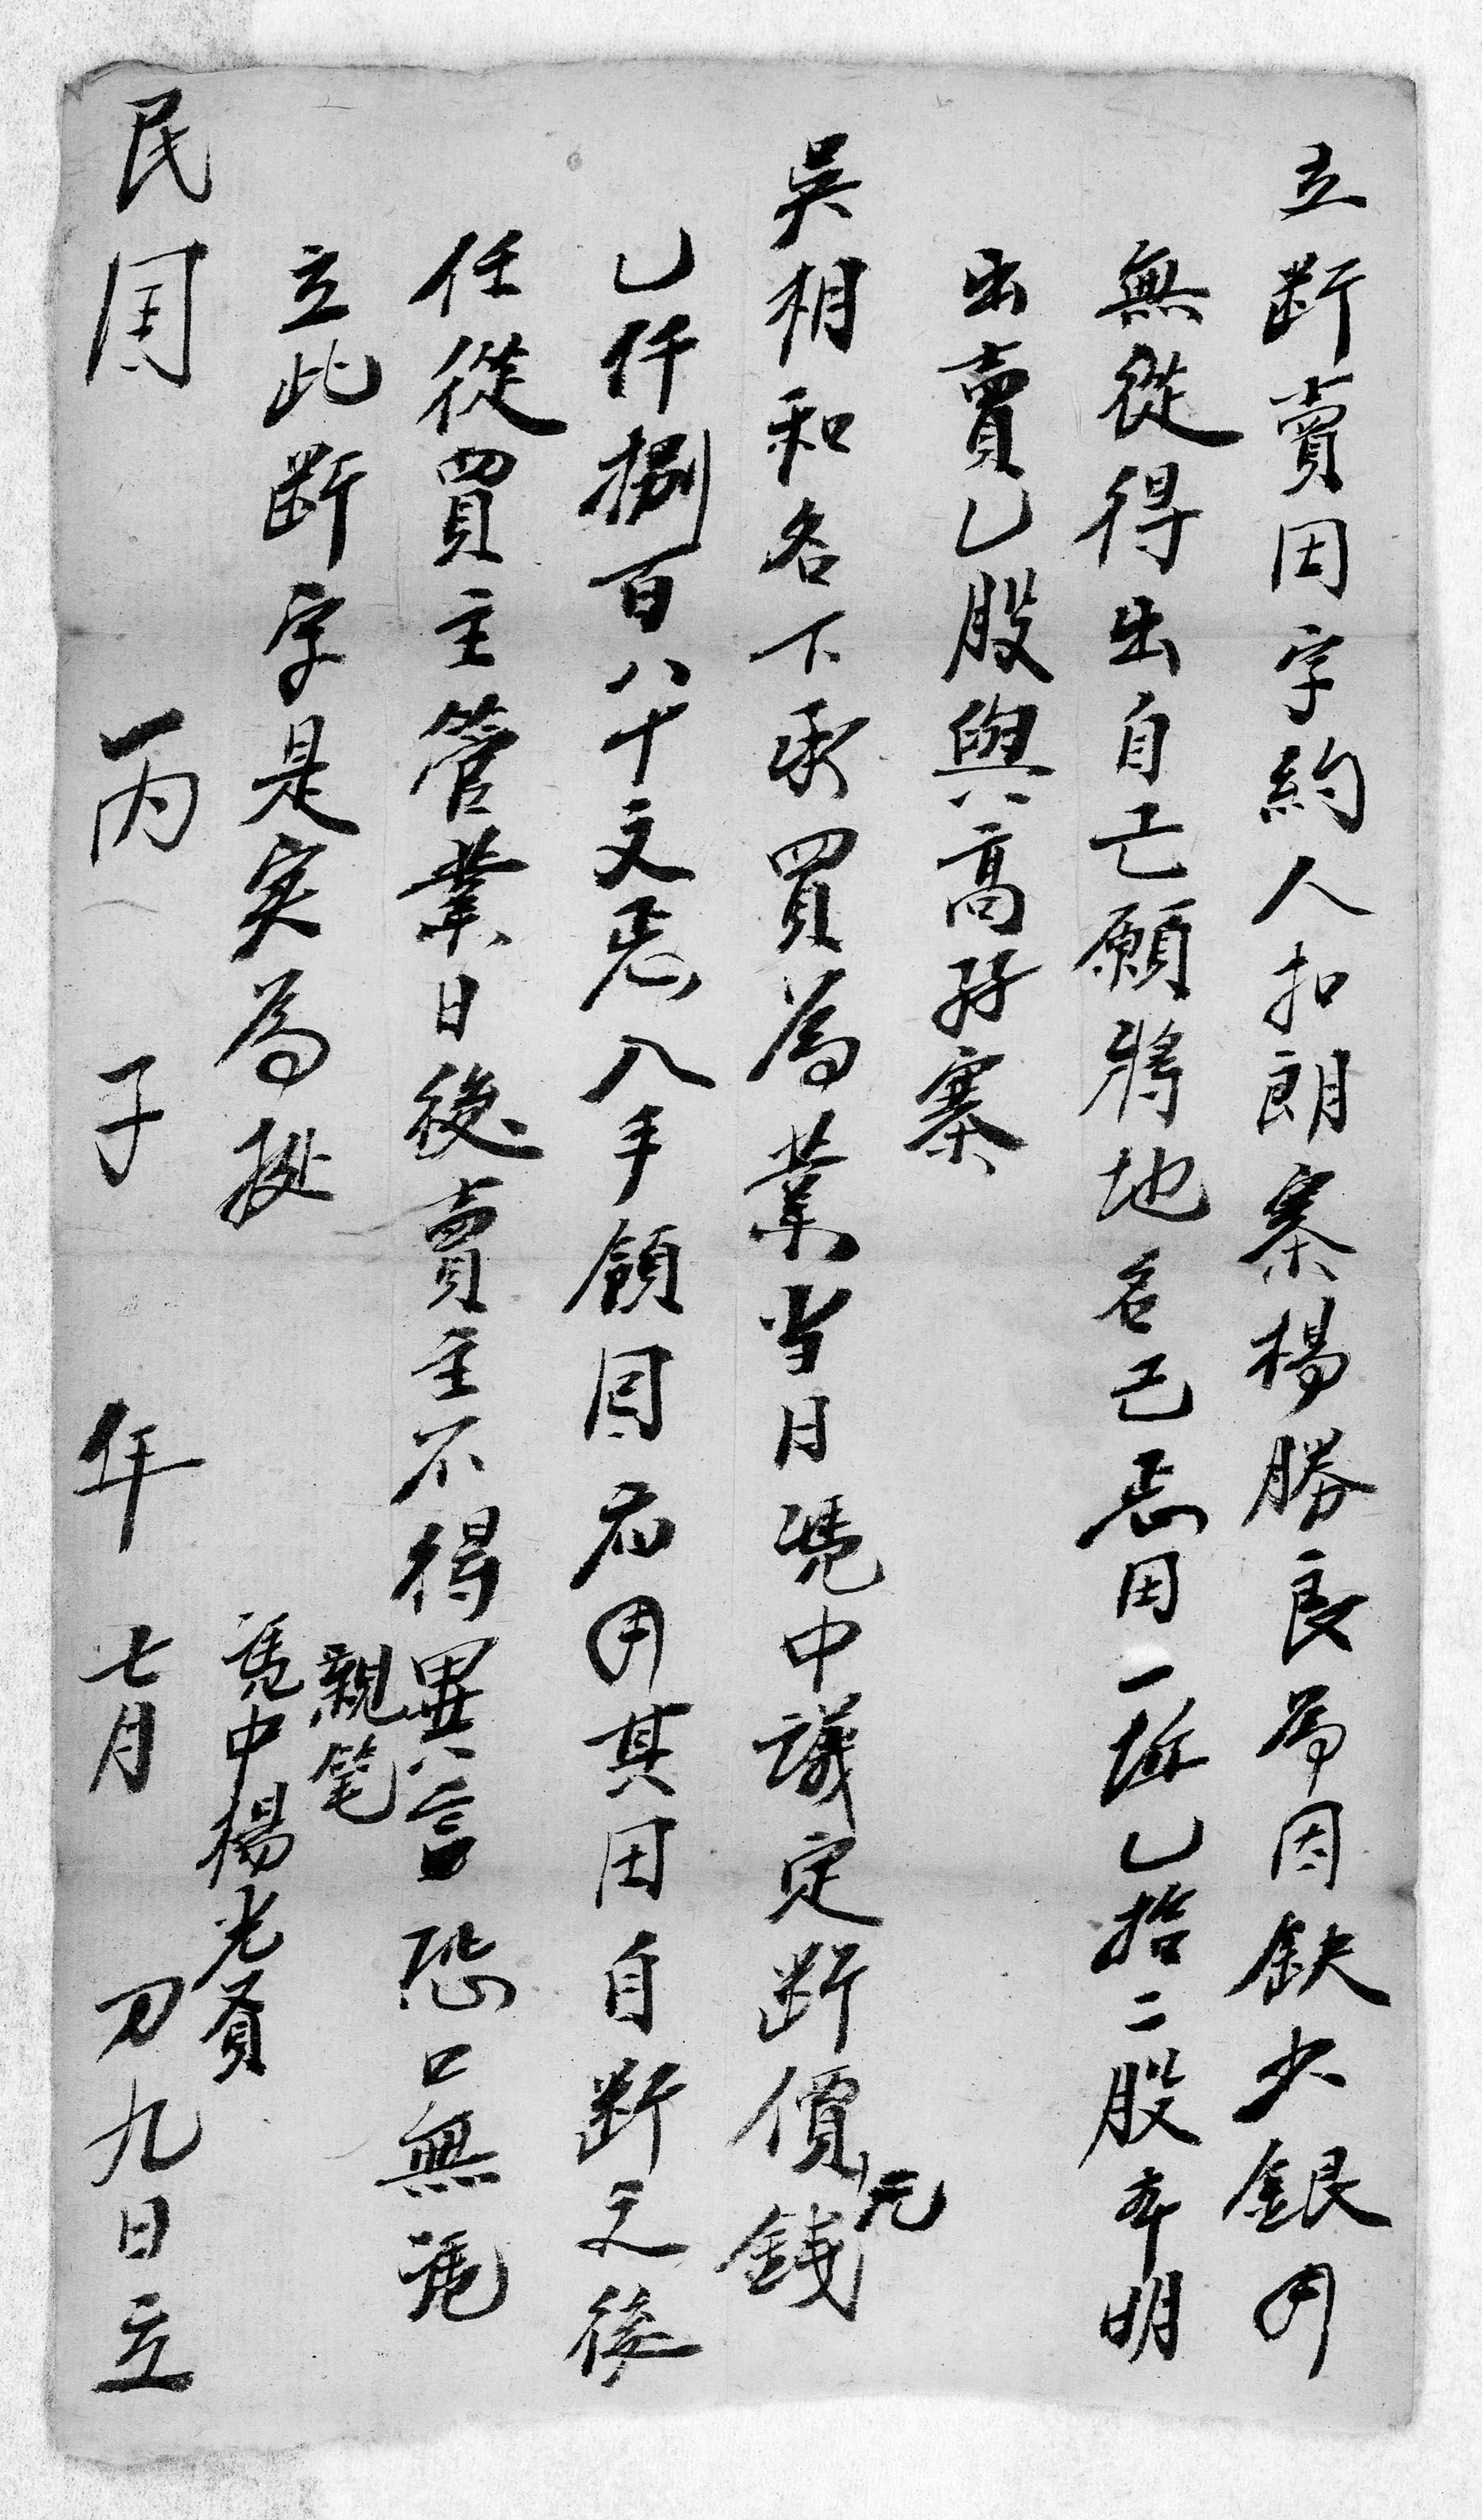 立断賣田字約人扣朗寨楊勝良為因缺少銀用
無從得出自己願將地名己恶田一坵乚拾二股本明
出賣乚股與高孖寨
吳相和名下承買為業当日凴中議定断價元錢
乚仟捌百八十文恶入手領回应用其田自断之後
任從買主管業日後賣主不得異言恐口無凴
立此断字是实為據
親笔
凴中楊光賢
民囯丙子年七月初九日立